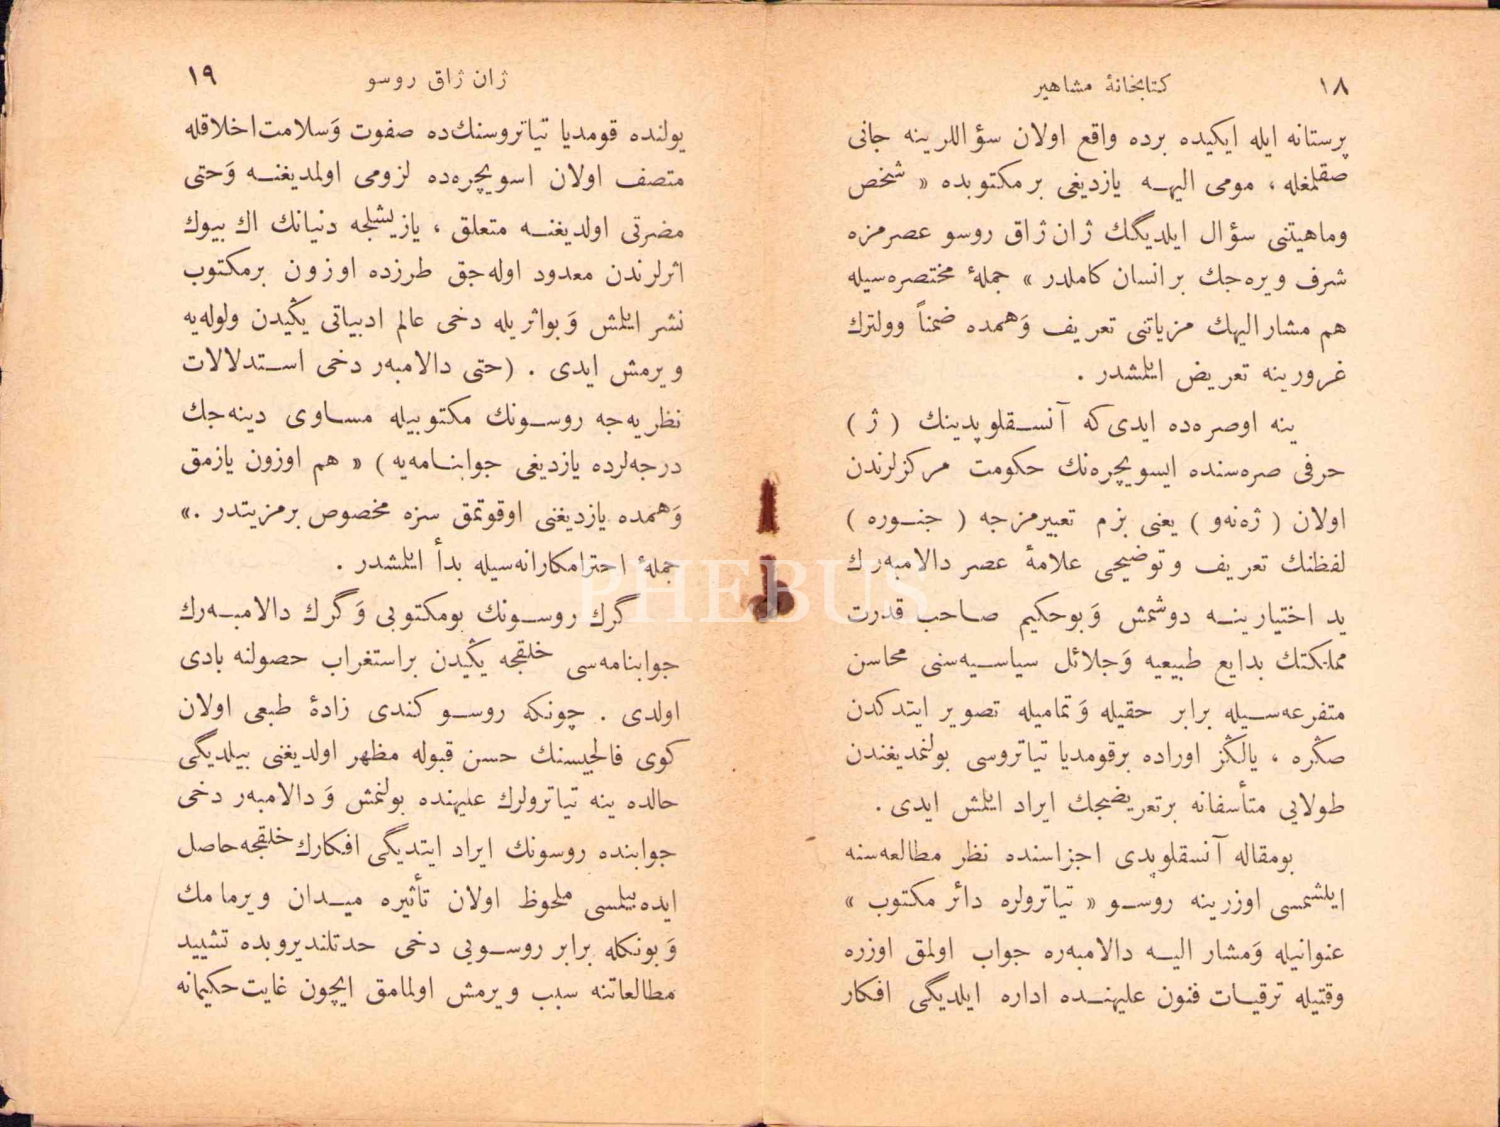 ١٨
كتابخانۀ مشاهير
پرستانه ايله ايكيده برده واقع اولان سؤاللرينه جانی
صقلمغله ، مومی اليهه يازديغی بر مكتوبده « شخص
وماهيتنی سؤال ايلديگك ژان ژاق روسو عصرمزه
شرف ويره‌جك بر انسان كاملدر » جملۀ مختصره‌سيله
هم مشار اليهك مزياتنی تعريف وَهمده ضمناً وولترك
غرورينه تعريض ايلمشدر .
ينه اوصره‌ده ايدی كه آنسقلوپدينك ( ژ )
حرفی صره‌سنده ايسويچره‌نك حكومت مركزلرندن
اولان ( ژه‌نه‌و ) يعنی بزم تعبيرمزجه ( جنوره )
لفظنك تعريف وتوضيحی علامۀ عصر دالامبه‌رك
يد اختيارينه دوشمش وَبوحكيم صاحب قدرت
مملكتك بدايع طبيعيه وَجلائل سياسيه‌سنی محاسن
متفرعه‌سيله برابر حقيله وَتماميله تصوير ايتدكدن
صكره ، يالكز اوراده برقومديا تياتروسی بولنمديغندن
طولايی متأسفانه برتعريضجك ايراد ايلمش ايدی .
بومقاله آنسقلوپدی اجزاسنده نظر مطالعه‌سنه
ايلشمسی اوزرينه روسو « تياترولره دائر مكتوب »
عنوانيله وَمشار اليه دالامبه‌ره جواب اولمق اوزره
وقتيله ترقيات فنون عليهنده اداره ايلديگی افكار
١٩
ژان ژاق روسو
يولنده قومديا تياتروسنك‌ده صفوت وَسلامت اخلاقله
متصف اولان اسويچره‌ده لزومی اولمديغنه وَحتی
مضرتی اولديغنه متعلق ، يازيشلجه دنيانك اك بيوك
اثرلرندن معدود اوله‌جق طرزده اوزون برمكتوب
نشر ايلمش وَبواثريله دخی عالم ادبياتی يكيدن ولوله‌يه
ويرمش ايدی . (حتی دالامبه‌ر دخی استدلالات
نظريه‌جه روسونك مكتوبيله مساوی دينه‌جك
درجه‌لرده يازديغی جوابنامه‌يه ) « هم اوزون يازمق
وَهمده يازديغنی اوقوتمق سزه مخصوص برمزيتدر .»
جملۀ احترامكارانه‌سيله بدأ ايلمشدر .
گرك روسونك بومكتوبی وَگرك دالامبه‌رك
جوابنامه‌سی خلقجه يكيدن براستغراب حصولنه بادی
اولدی . چونكه روسو كندی زادۀ طبعی اولان
كوی فالجيسنك حسن قبوله مظهر اولديغنی بيلديگی
حالده ينه تياترولرك عليهنده بولنمش وَدالامبه‌ر دخی
جوابنده روسونك ايراد ايتديگی افكارك خلقجه حاصل
ايده‌بيلمسی ملحوظ اولان تأثيره ميدان ويرمامك
وَبونكله برابر روسويی دخی حدتلنديروبده تشييد
مطالعاتنه سبب ويرمش اولمامق ايچون غايت حكيمانه
PHEBUS